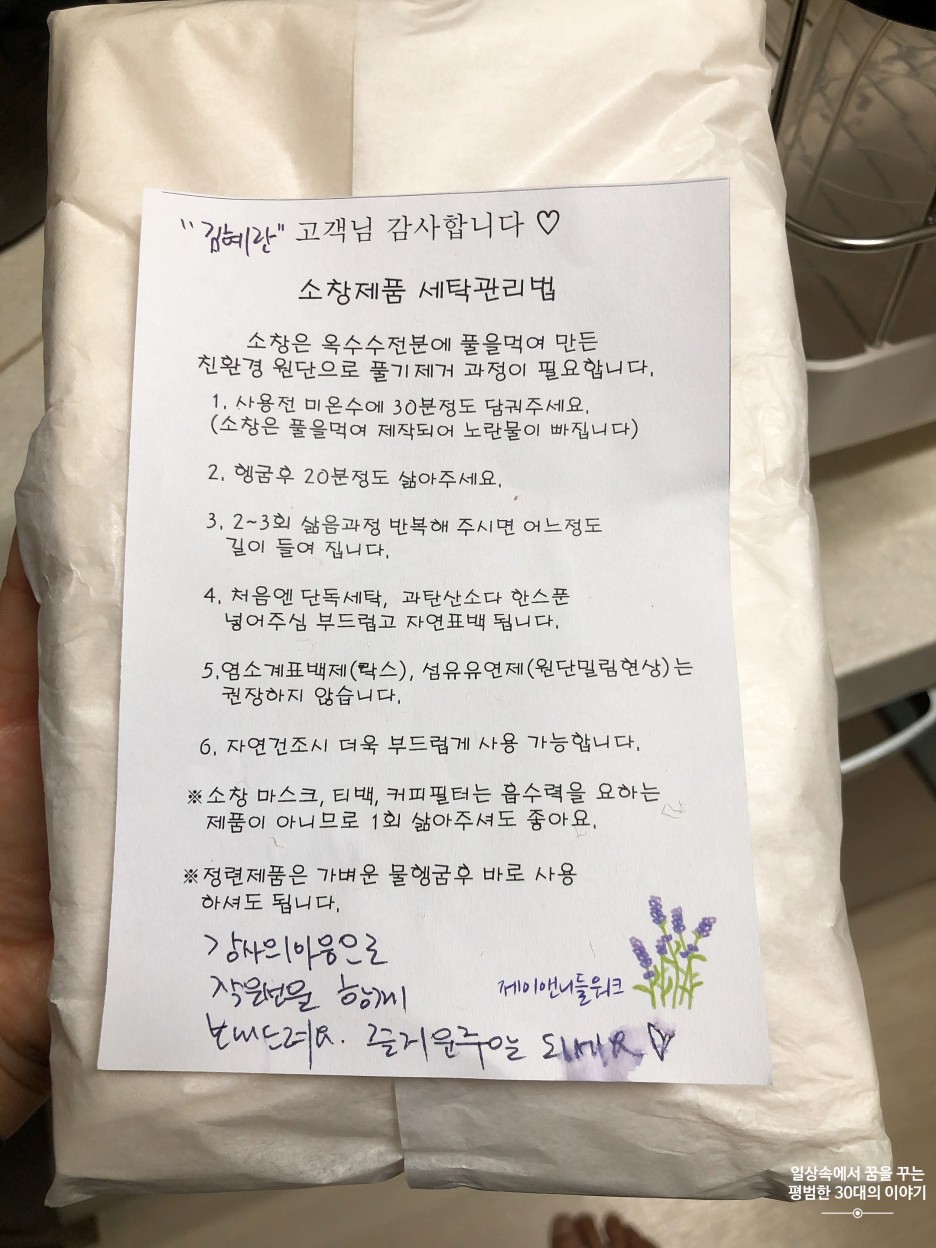 "김혜란" 고객님 감사합니다 ♡
소창제품 세탁관리법
소창은 옥수수전분에 풀을먹여 만든
친환경 원단으로 풀기제거 과정이 필요합니다.
1. 사용전 미온수에 30분정도 담궈주세요.
(소창은 풀을먹여 제작되어 노란물이 빠집니다)
2. 헹굼후 20분정도 삶아주세요.
3. 2~3회 삶음과정 반복해 주시면 어느정도
길이 들여 집니다.
4. 처음엔 단독세탁, 과탄산소다 한스푼
넣어주심 부드럽고 자연표백 됩니다.
5.염소계표백제(락스), 섬유유연제(원단밀림현상)는
권장하지 않습니다.
6. 자연건조시 더욱 부드럽게 사용 가능합니다.
※소창 마스크, 티백, 커피필터는 흡수력을 요하는
제품이 아니므로 1회 삶아주셔도 좋아요.
※정련제품은 가벼운 물헹굼후 바로 사용
하셔도 됩니다.
감사의마음으로
작은선물 함께
보내드려요. 즐거운주말 되세요♡
제이앤니들워크
일상속에서 꿈을 꾸는
평범한 30대의 이야기